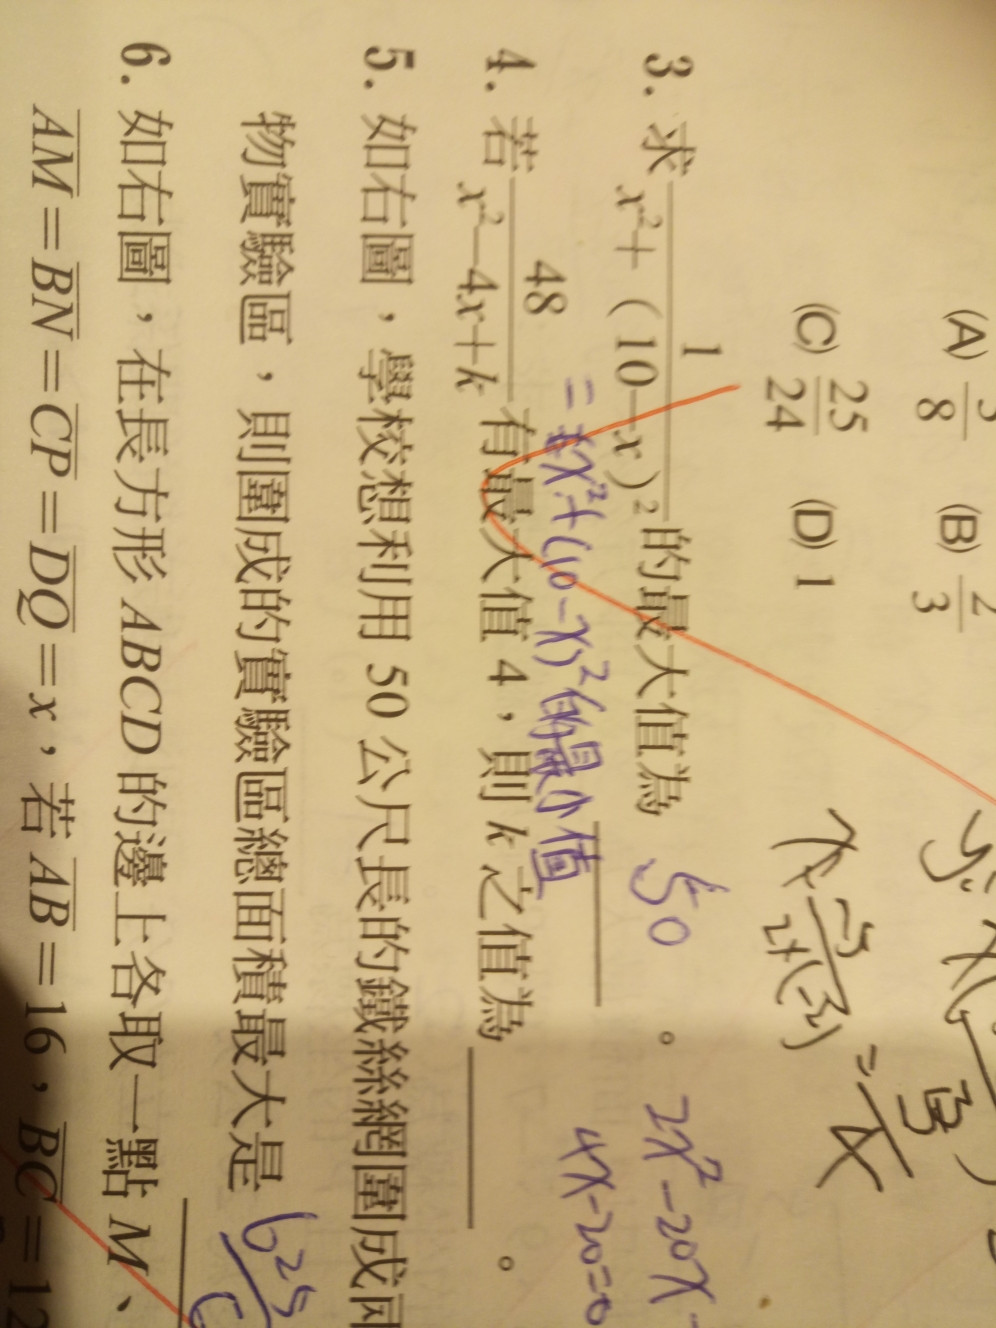 (A) 8 (B) 2/3
(C) 25/24 (D) 1
3. 求 1/(x²+(10-x)²) 的最大值為 50 。 2x²-20x
= x²+(10-x)²的最小值 4x-20=0
4. 若 48/(x²-4x+k) 有最大值 4,則 k 之值為 。
5. 如右圖,學校想利用 50 公尺長的鐵絲網圍成
物實驗區,則圍成的實驗區總面積最大是 625
6. 如右圖,在長方形 ABCD 的邊上各取一點 M、
AM=BN=CP=DQ=x,若 AB=16,BC=12